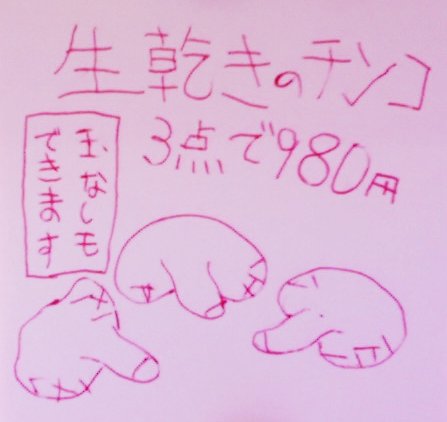 生乾きのチンコ
3点で980円
玉なしも
できます